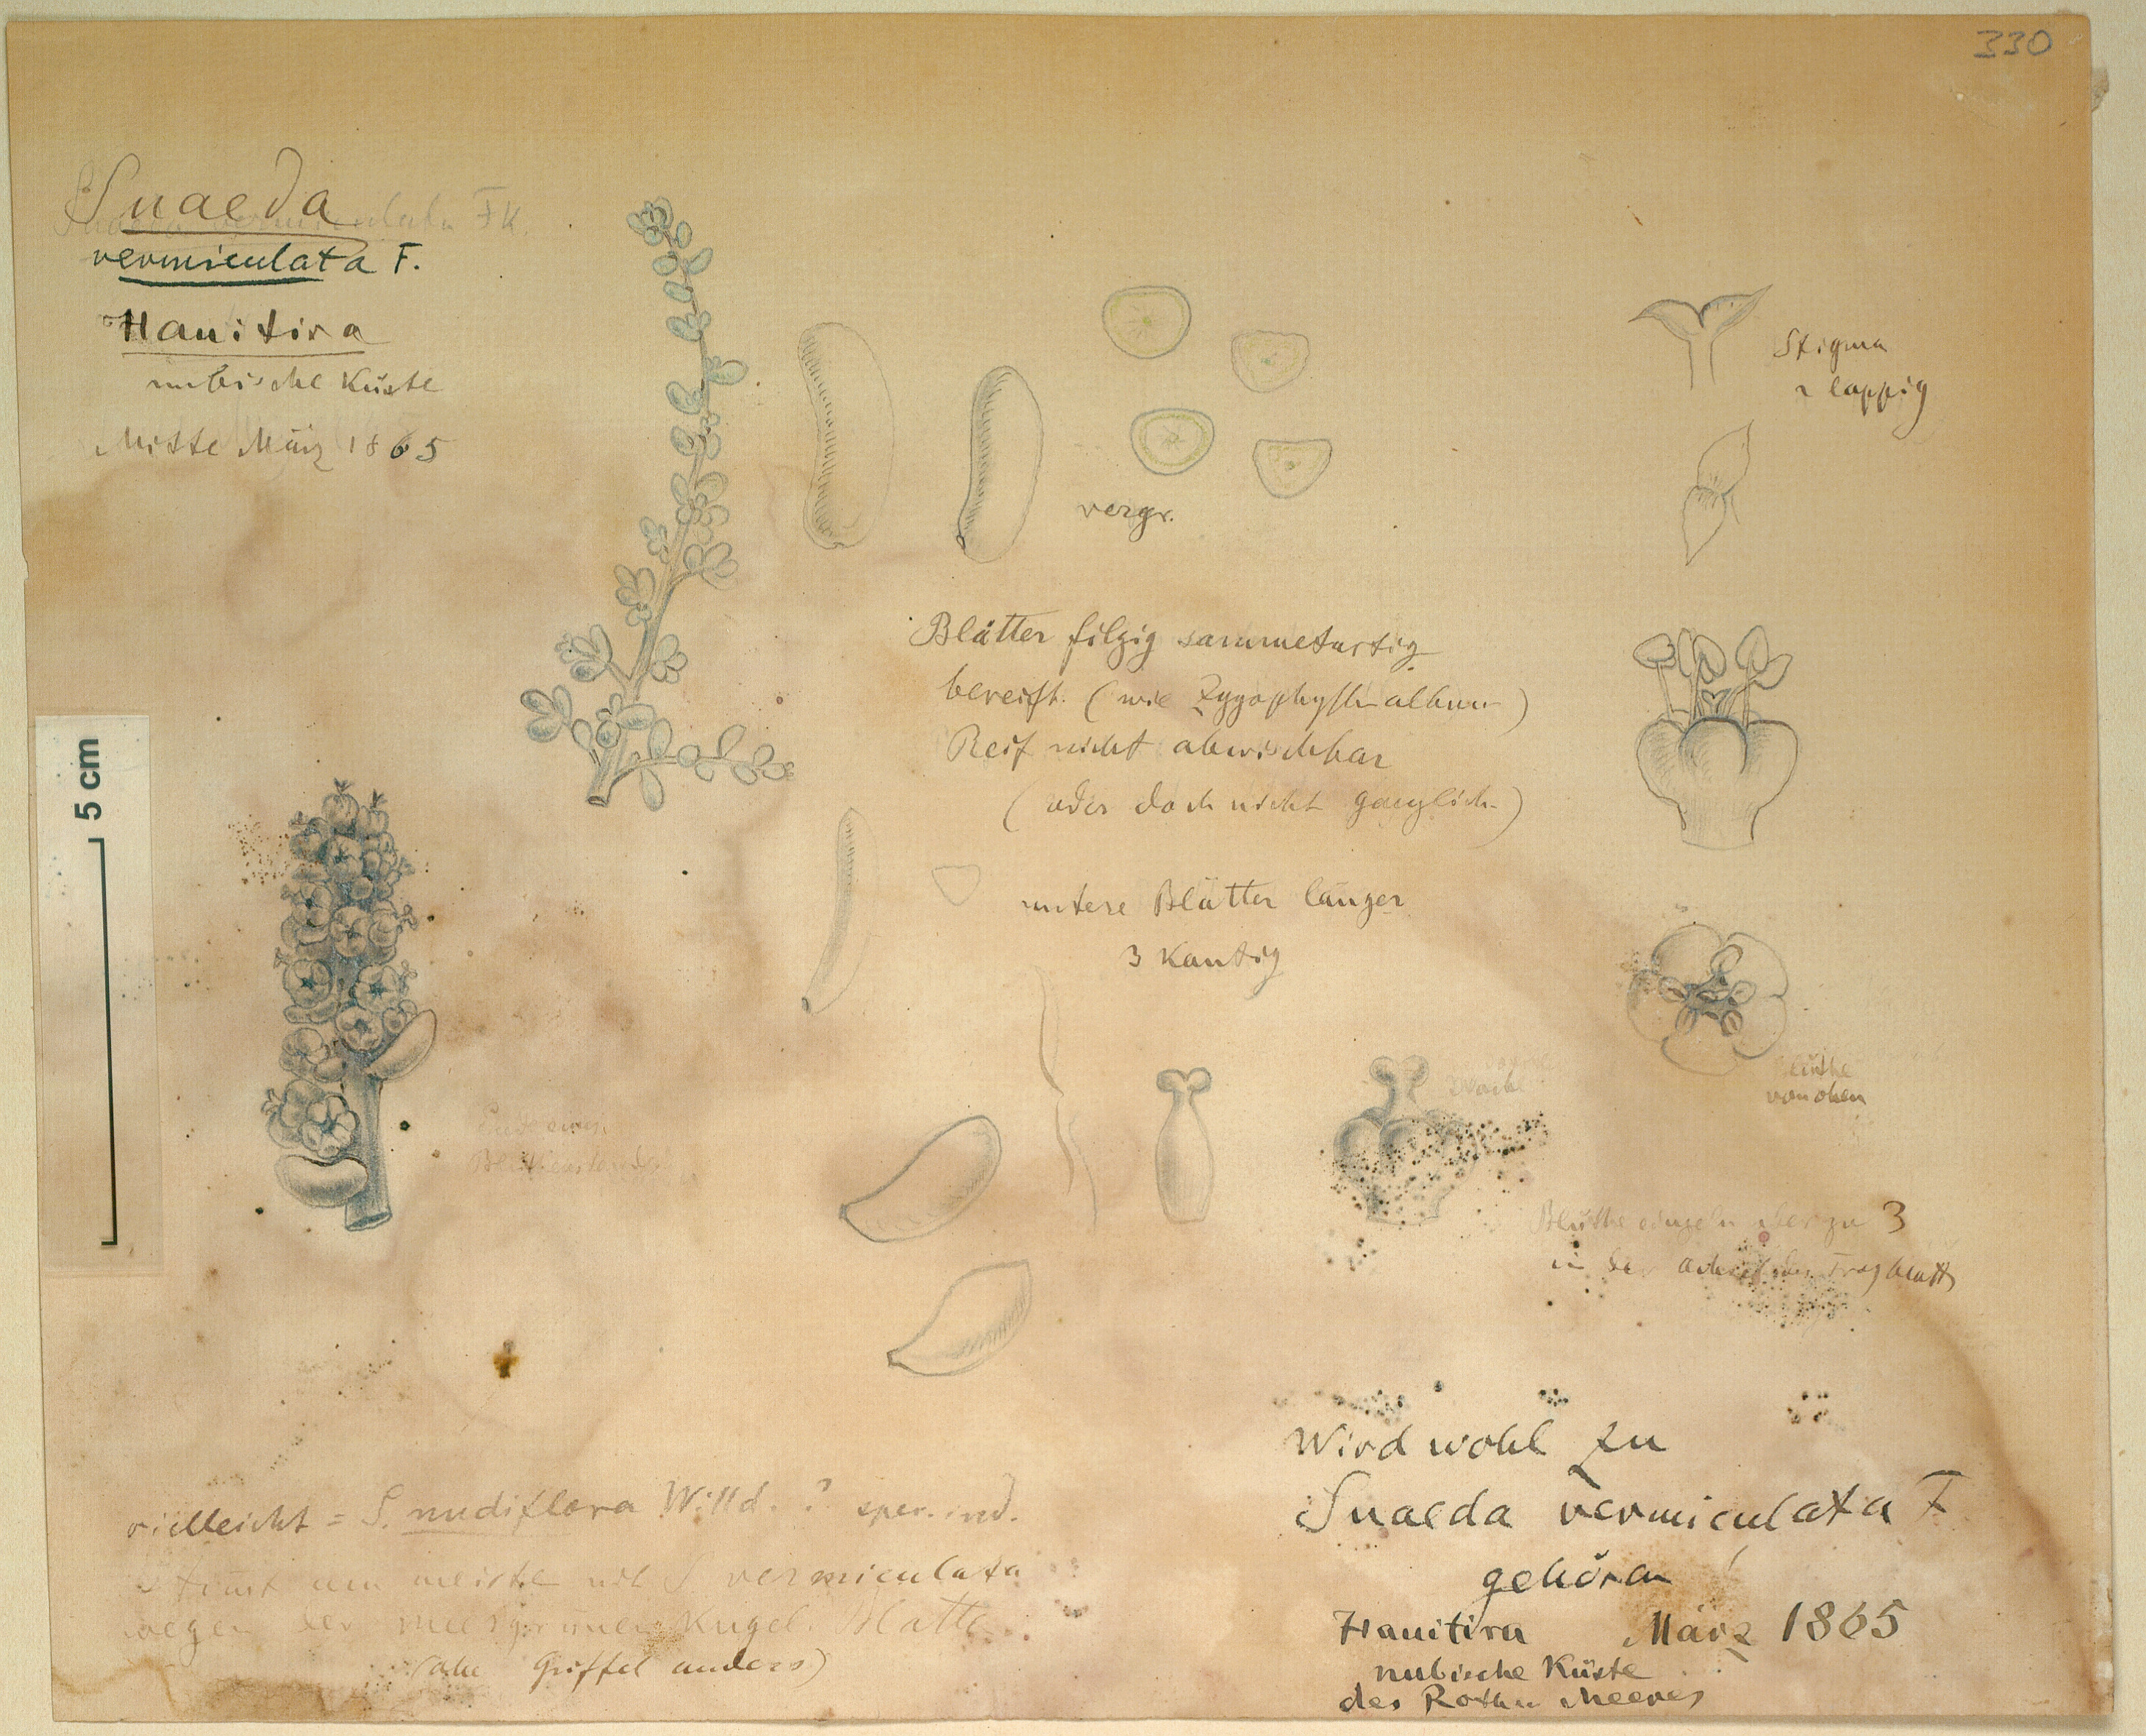 330
Suaeda
Suaeda vermiculata FK.
vermiculata F.
Hanitira
nubische Küste
Mitte März 1865
vergr.
Stigma
2 lappig
Blätter filzig sammetartig
bereift. (wie Zygophyllum album)
Reif nicht abwischbar
(oder doch nicht gänzlich)
untere Blätter länger
3 Kantig
5 cm
von oben
Ende eines
Blüthenstandes
Blüthe einzeln oder zu 3
in der Achsel des Tragblatts
vielleicht = S. nudiflora Willd. ? spec. ind.
Stimt am meisten mit S. vermiculata
wegen der meergrünen Kugel. Blätter
(aber Griffel anders)
Wird wohl zu
Suaeda vermiculata F
gehören!
Hanitira März 1865
nubische Küste
des Rothen Meeres